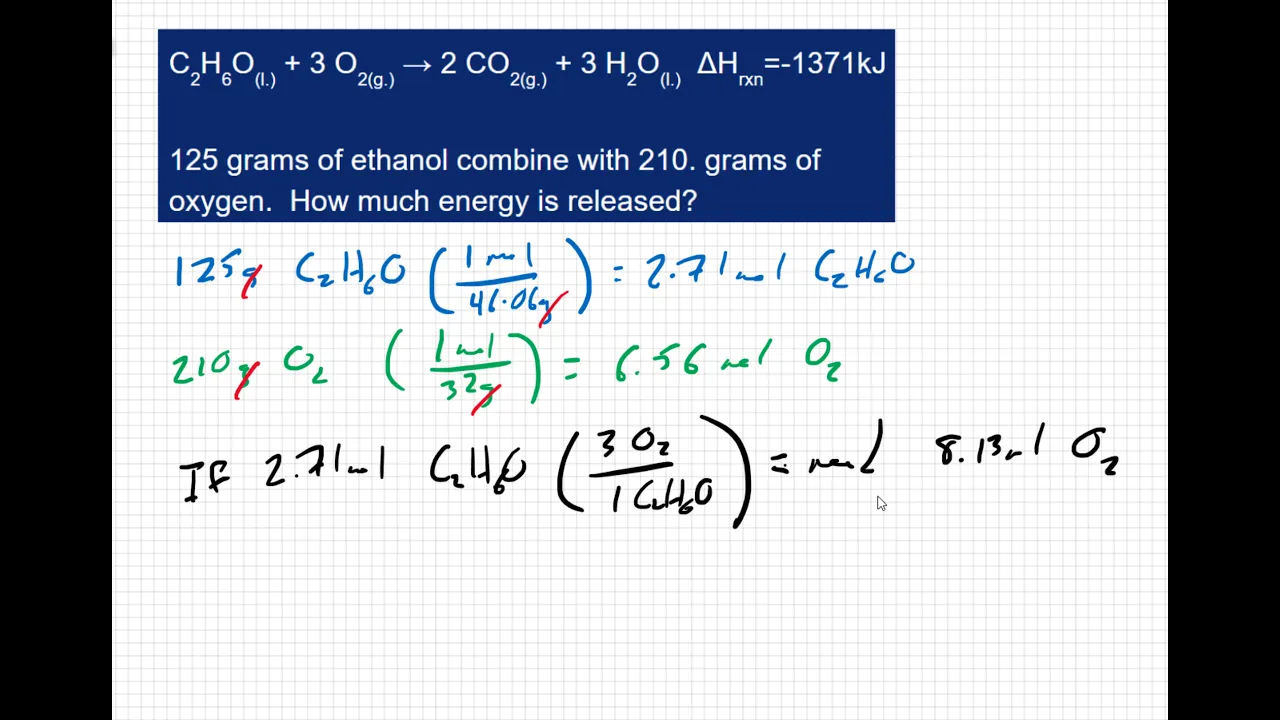 C₂H₆O(l.) + 3 O₂(g.) → 2 CO₂(g.) + 3 H₂O(l.) ΔHrxn=-1371kJ
125 grams of ethanol combine with 210. grams of
oxygen. How much energy is released?
125g C₂H₆O (1 mol / 46.06g) = 2.71 mol C₂H₆O
210g O₂ (1 mol / 32g) = 6.56 mol O₂
If 2.71 mol C₂H₆O (3 O₂ / 1 C₂H₆O) = need 8.13 mol O₂